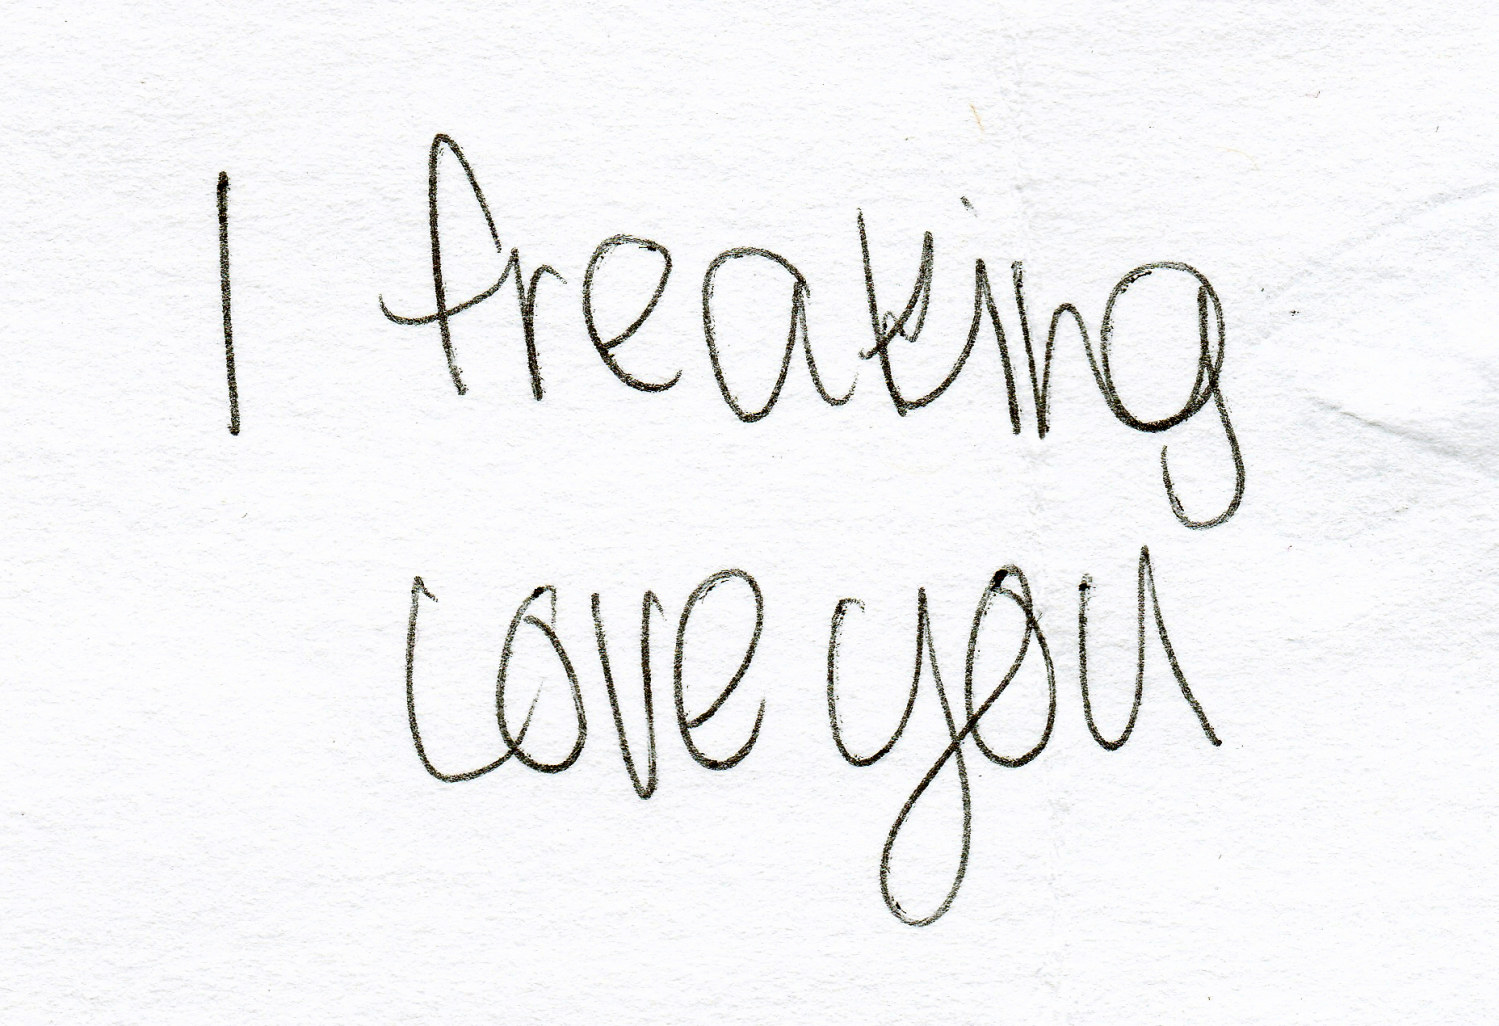 I freaking
love you